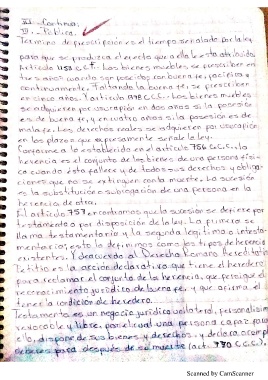 III.- Continua.
IV.- Pública.
Termino de prescripción es el tiempo señalado por la ley
para que se produzca el efecto que a ella le esta atribuido
Articulo 1153 C.C.F. Los bienes muebles se prescriben en
tres años cuando son poseidos con buena fe, pacifica y
continuamente. Faltando la buena fe, se prescriben
en cinco años.
se adquieren por usucapion en dos años si la posesión
es de buena fe, y en cuatro años, si la posesión es de
mala fe. Los derechos reales se adquieren por usucapión
en los plazos que expresamente señale la ley.
Conforme a lo establecido en el articulo 756 C.C.G., la
herencia es el conjunto de los bienes de una persona físi-
ca cuando ésta fallece y de todos sus derechos y obliga-
ciones que no se extinguen con la muerte. La sucesión
es la substitución o subrogación de una persona en la
herencia de otra.
El articulo 757 encontramos que la sucesión se defiere por
testamento o por disposición de la ley. La primera se
llama testamentaria y la segunda legítima o intesta-
mentaria, esto lo definimos como los tipos de herencia
existentes. Y de acuerdo al Derecho Romano hereditatis
Petitio es la acción declarativa que tiene el heredero
para reclamar el conjunto de la herencia, que persigue el
reconocimiento jurídico de buena fe, y que afirma el
tener la condición de heredero.
Testamento es un negocio jurídico unilateral, personalísimo
revocable y libre, por el cual una persona capaz para
ello, dispone de sus bienes y derechos, y declara o cumple
deberes para después de su muerte (art. 770 C.C.G.).
Scanned by CamScanner